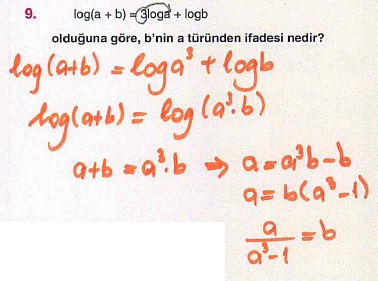 9. log(a + b) = 3loga + logb
olduğuna göre, b'nin a türünden ifadesi nedir?
log(a+b) = loga³ + logb
log(a+b) = log(a³.b)
a+b = a³.b ⇒ a = a³b - b
a = b(a³-1)
a/(a³-1) = b